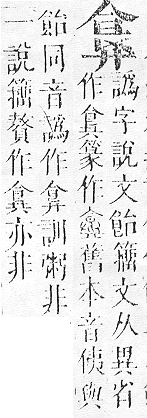 譌字說文飴籀文从異省
作篆作舊本音俟與
飴同音譌作訓粥非
一說籀贅作亦非